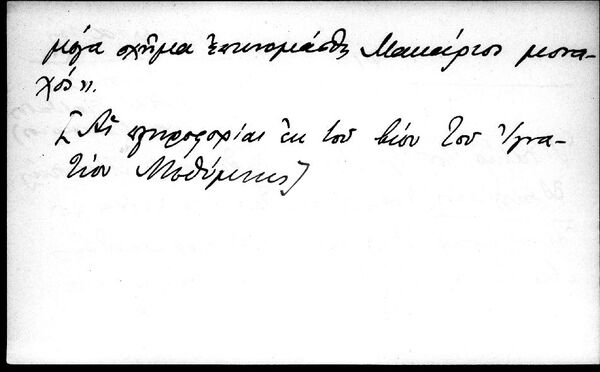 μέγα σχῆμα ἐπωνομάσθη Μακάριος μονα-
χός».
[Αἱ πληροφορίαι ἐκ τοῦ βίου τοῦ Ἰγνα-
τίου Μηθύμνης]